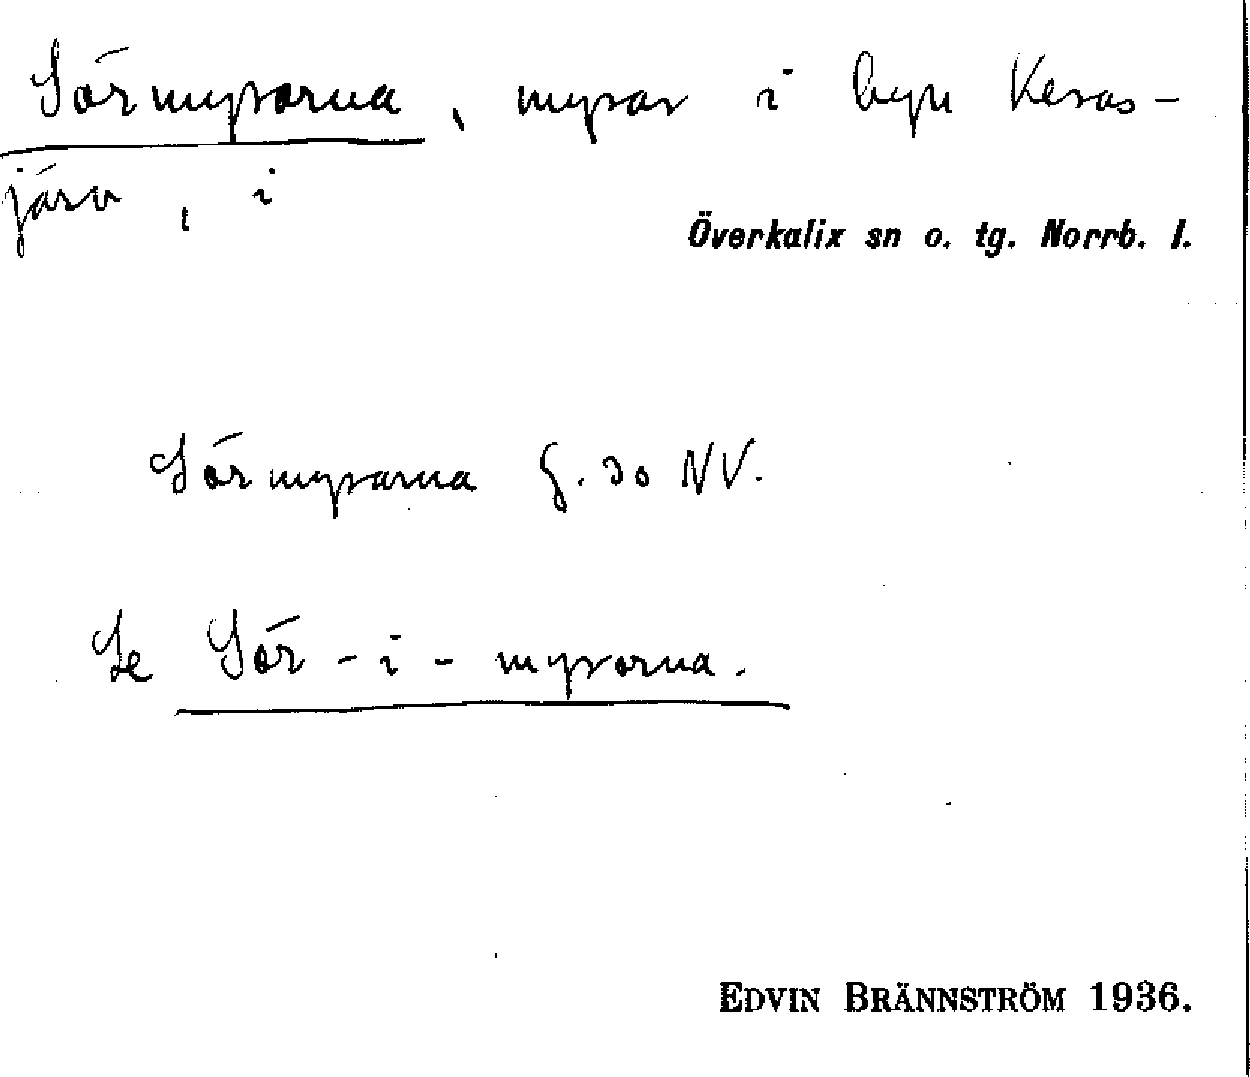 Sörmyrorna, myrar i byn Keras-
järv, i
Överkalix sn o. tg. Norrb. l.
Sörmyrarna G. 30 NV.
Se Sör-i-myrorna.
EDVIN BRÄNNSTRÖM 1936.